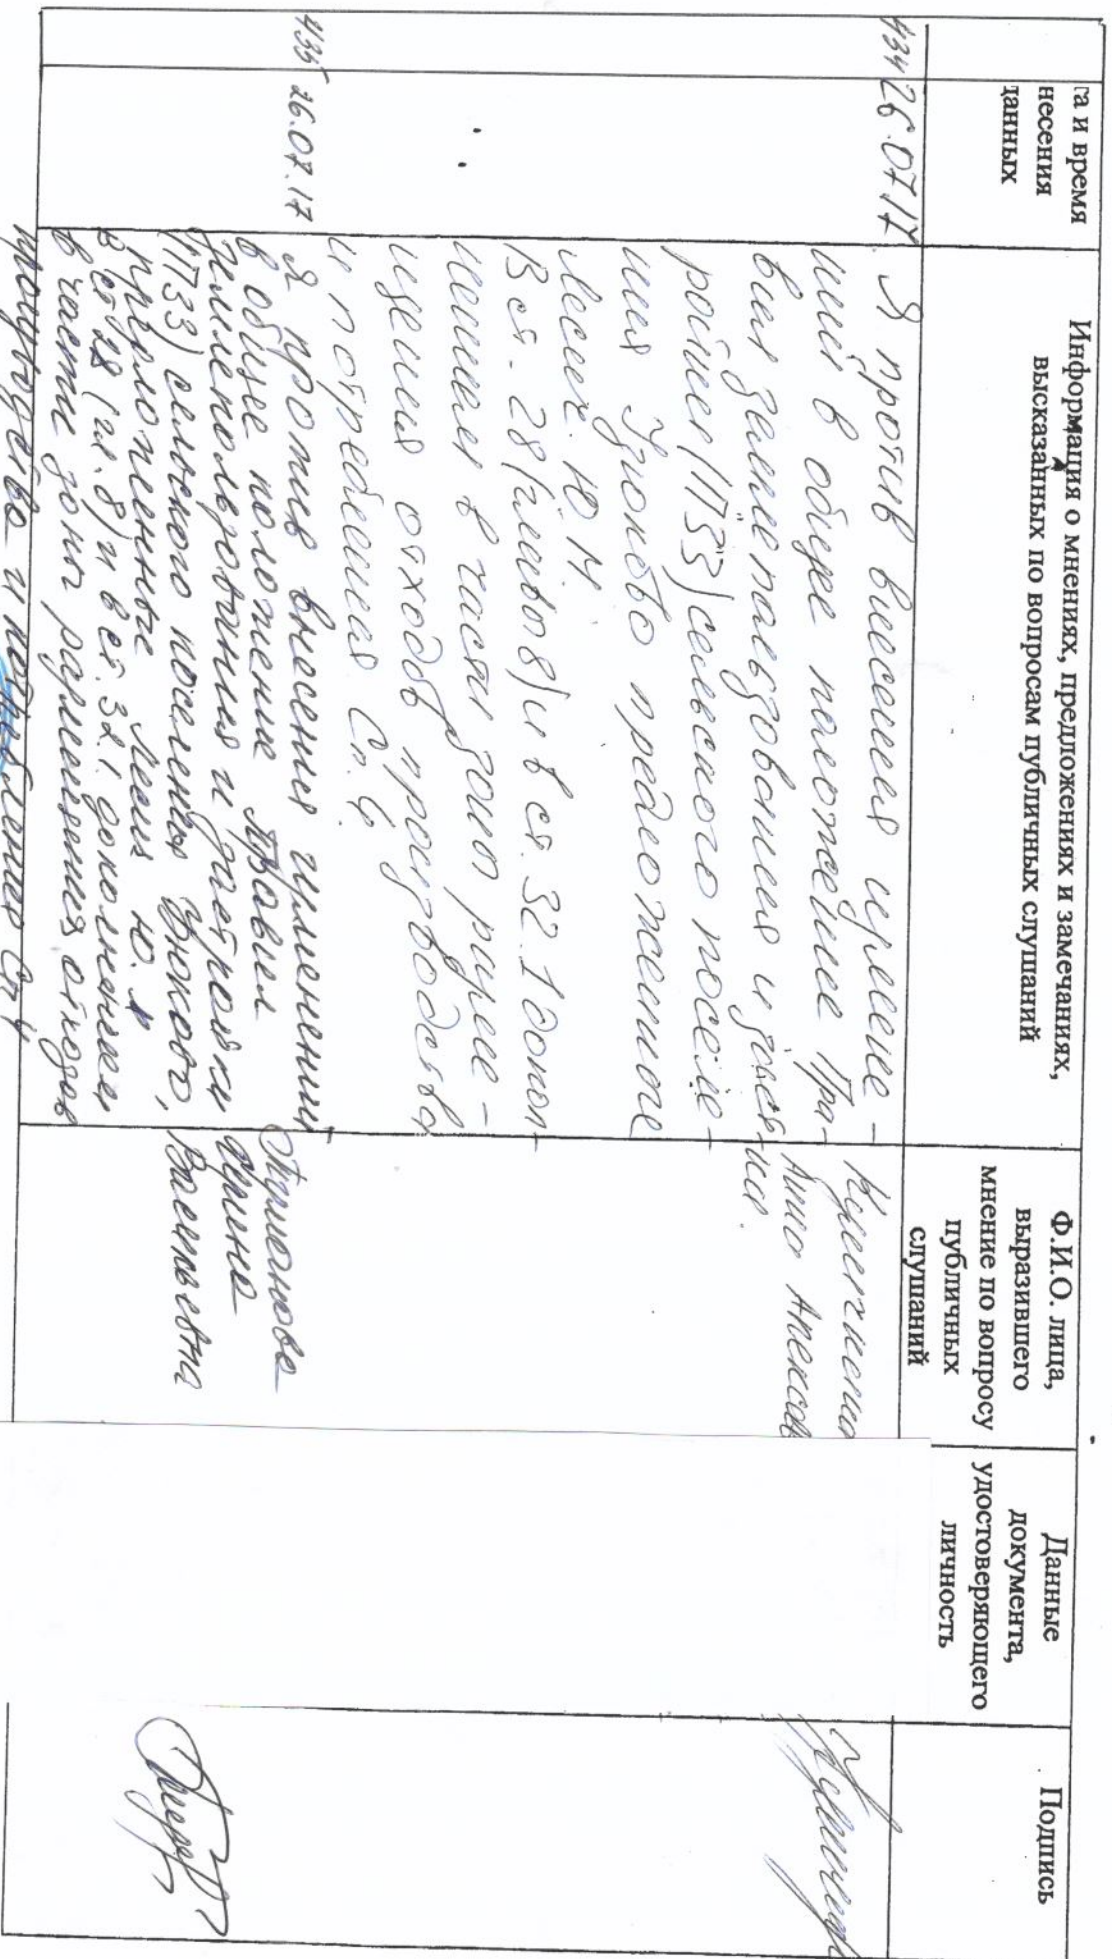 га и время
несения
данных
Информация о мнениях, предложениях и замечаниях,
высказанных по вопросам публичных слушаний
Ф.И.О. лица,
выразившего
мнение по вопросу
публичных
слушаний
Данные
документа,
удостоверяющего
личность
Подпись
434 26.07.17. Я против внесения измене-
ний в общее положение Пра-
вил землепользования и заст
ройки (ПЗЗ) сельского поселе-
ния Узюково предложенное
Лесик. Ю.М.
В ст. 28 (глава 8) и в ст. 32.1 допол
нения в части зоны разме-
щения отходов производства
и потребления Сп.4.
Анна Алексов
на.
435 26.07.17 Я против внесения изменений
в общее положение Правил
землепользования и застройки
(ПЗЗ) сельского поселения Узюково,
предложенные Ю.
в ст 28 (гл. 8) и в ст. 32.1. дополнение
в части зоны размещения отходов
производства и потребления Сп 4
Ирина
Васильевна